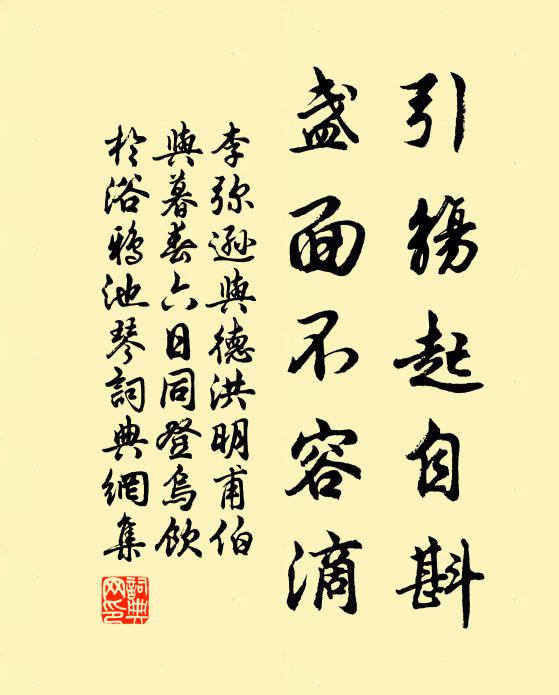 引觴起自斟
盏面不容滴
李弥逊與德洪明甫伯
與暮春六日同登烏飲
於浴鴉池琴詞典網集
詞典網印